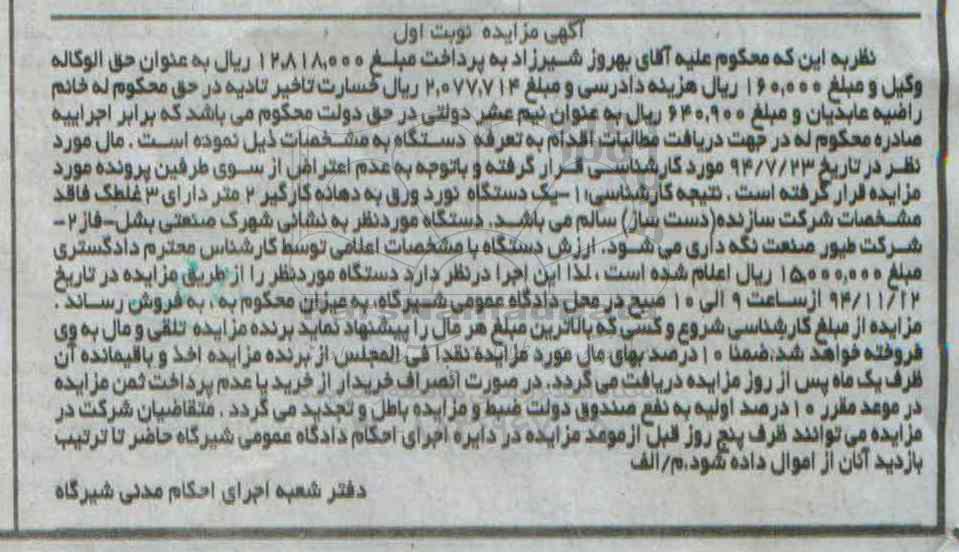 آگهی مزایده نوبت اول
نظر به این که محکوم علیه آقای بهروز شیرزاد به پرداخت مبلغ ۱۲,۸۱۸,۰۰۰ ریال به عنوان حق الوکاله
وکیل و مبلغ ۱۶۰,۰۰۰ ریال هزینه دادرسی و مبلغ ۲,۰۷۷,۷۱۴ ریال خسارت تاخیر تادیه در حق محکوم له خانم
راضیه عابدیان و مبلغ ۶۴۰,۹۰۰ ریال به عنوان نیم عشر دولتی در حق دولت محکوم می باشد که برابر اجراییه
صادره محکوم له در جهت دریافت مطالبات اقدام به تعرفه دستگاه به مشخصات ذیل نموده است . مال مورد
نظر در تاریخ ۹۴/۷/۲۳ مورد کارشناسی قرار گرفته و باتوجه به عدم اعتراض از سوی طرفین پرونده مورد
مزایده قرار گرفته است . نتیجه کارشناسی: ۱-یک دستگاه نورد ورق به دهانه کارگیر ۲ متر دارای ۳ غلطک فاقد
مشخصات شرکت سازنده(دست ساز) سالم می باشد. دستگاه موردنظر به نشانی شهرک صنعتی بشل-فاز ۲-
شرکت طیور صنعت نگه داری می شود. ارزش دستگاه با مشخصات اعلامی توسط کارشناس محترم دادگستری
مبلغ ۱۵۰۰۰,۰۰۰ ریال اعلام شده است ، لذا این اجرا درنظر دارد دستگاه موردنظر را از طریق مزایده در تاریخ
۹۴/۱۱/۱۲ ازساعت ۹ الی ۱۰ صبح در محل دادگاه عمومی شیرگاه، به میزان محکوم به ، به فروش رساند .
مزایده از مبلغ کارشناسی شروع و کسی که بالاترین مبلغ هر مال را پیشنهاد نماید برنده مزایده تلقی و مال به وی
فروخته خواهد شد.ضمنا ۱۰ درصد بهای مال مورد مزایده نقدا فی المجلس از برنده مزایده اخذ و باقیمانده آن
ظرف یک ماه پس از روز مزایده دریافت می گردد. در صورت انصراف خریدار از خرید یا عدم پرداخت ثمن مزایده
در موعد مقرر ۱۰ درصد اولیه به نفع صندوق دولت ضبط و مزایده باطل و تجدید می گردد . متقاضیان شرکت در
مزایده می توانند ظرف پنج روز قبل ازموعد مزایده در دایره اجرای احکام دادگاه عمومی شیرگاه حاضر تا ترتیب
بازدید آنان از اموال داده شود.م/الف
دفتر شعبه اجرای احکام مدنی شیرگاه